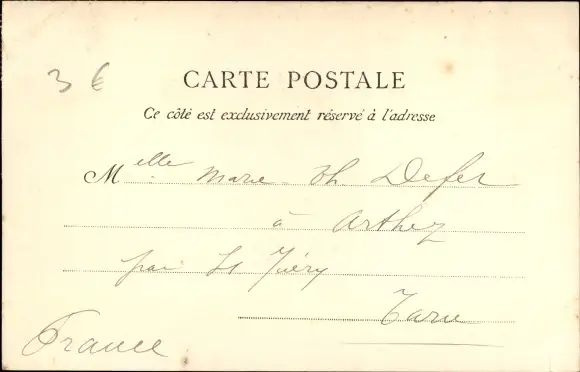 3 €
CARTE POSTALE
Ce côté est exclusivement réservé à l'adresse
Melle Marie Th Defer
à Arthez
par St Juéry
Tarn
France